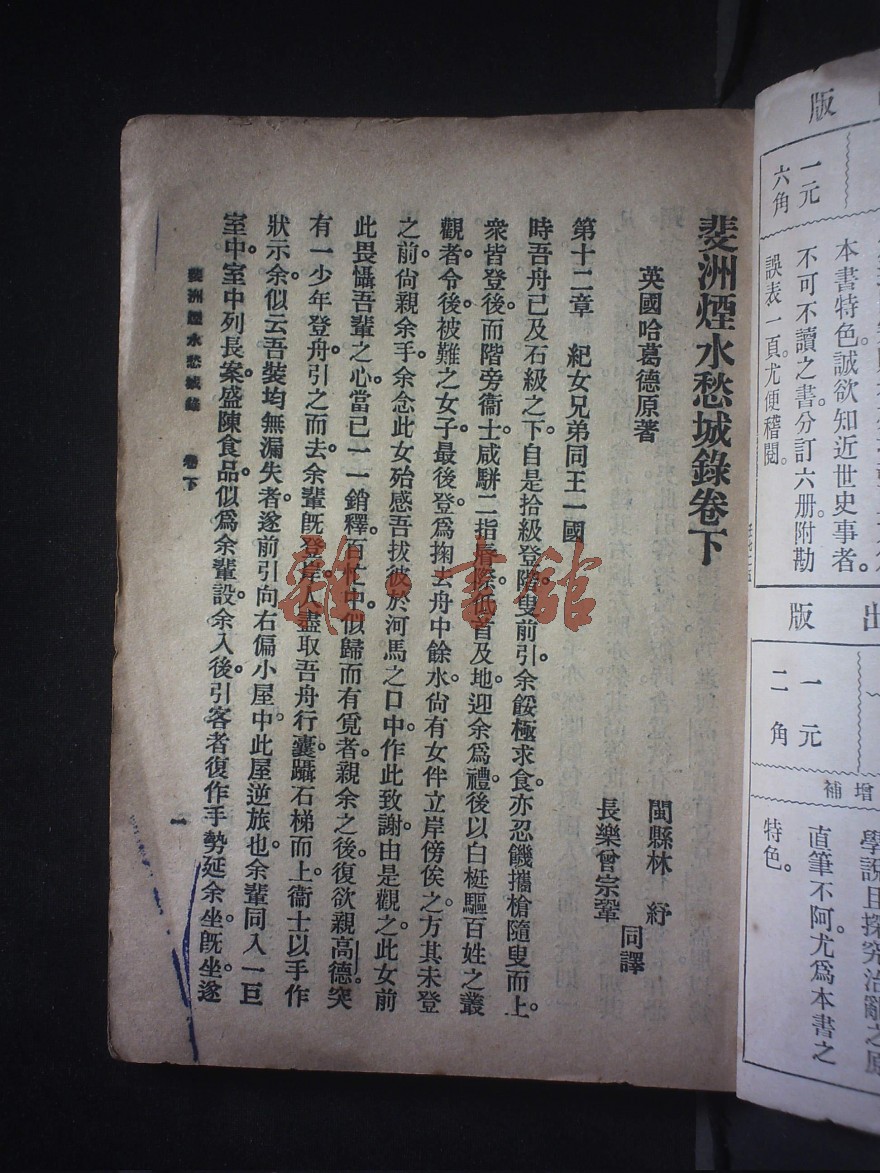 版
一元
六角
本書特色。誠欲知近世史事者。
不可不讀之書。分訂六册。附勘
誤表一頁。尤便稽閱。
出版
一元
二角
增補
學說。且探究治亂之原
直筆不阿。尤爲本書之
特色。
斐洲煙水愁城錄卷下
英國哈葛德原著
閩縣林紓
長樂曾宗鞏
同譯
第十二章 紀女兄弟同王一國
時吾舟已及石級之下。自是拾級登階。叟前引。余餒極求食。亦忍饑攜槍隨叟而上。
衆皆登後。而階旁衞士咸騈二指脣際。低首及地。迎余爲禮。後以白梃驅百姓之叢
觀者。令後。被難之女子最後登。爲掬去舟中餘水。尙有女伴立岸傍俟之。方其未登
之前。尙親余手。余念此女殆感吾拔彼於河馬之口中。作此致謝。由是觀之。此女前
此畏懾吾輩之心。當已一一銷釋。百忙中似歸而有覓者。親余之後。復欲親高德。突
有一少年登舟。引之而去。余輩旣登岸。人盡取吾舟行囊。躡石梯而上。衞士以手作
狀示余。似云吾裝均無漏失者。遂前引向右偏小屋中。此屋逆旅也。余輩同入一巨
室中。室中列長案。盛陳食品。似爲余輩設。余入後。引客者復作手勢延余坐。旣坐。遂
斐洲煙水愁城錄 卷下
一
雜·書館